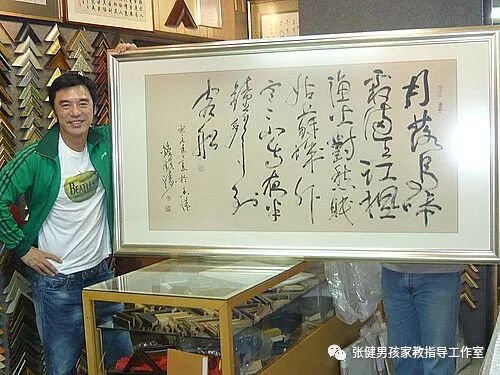 月落烏啼
霜滿天江楓
漁火對愁眠
姑蘇城外
寒山寺夜半
鐘聲到
客船
BEATLES
张健男孩家教指导工作室